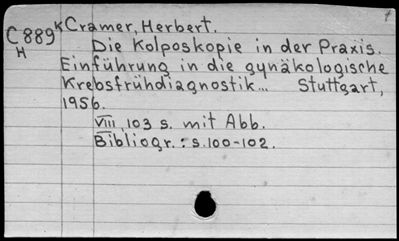 C889K Cramer, Herbert.
H Die Kolposkopie in der Praxis.
Einführung in die gynäkologische
Krebsfrühdiagnostik... Stuttgart,
1956.
VIII, 103 s. mit Abb.
Bibliogr.: s.100-102.